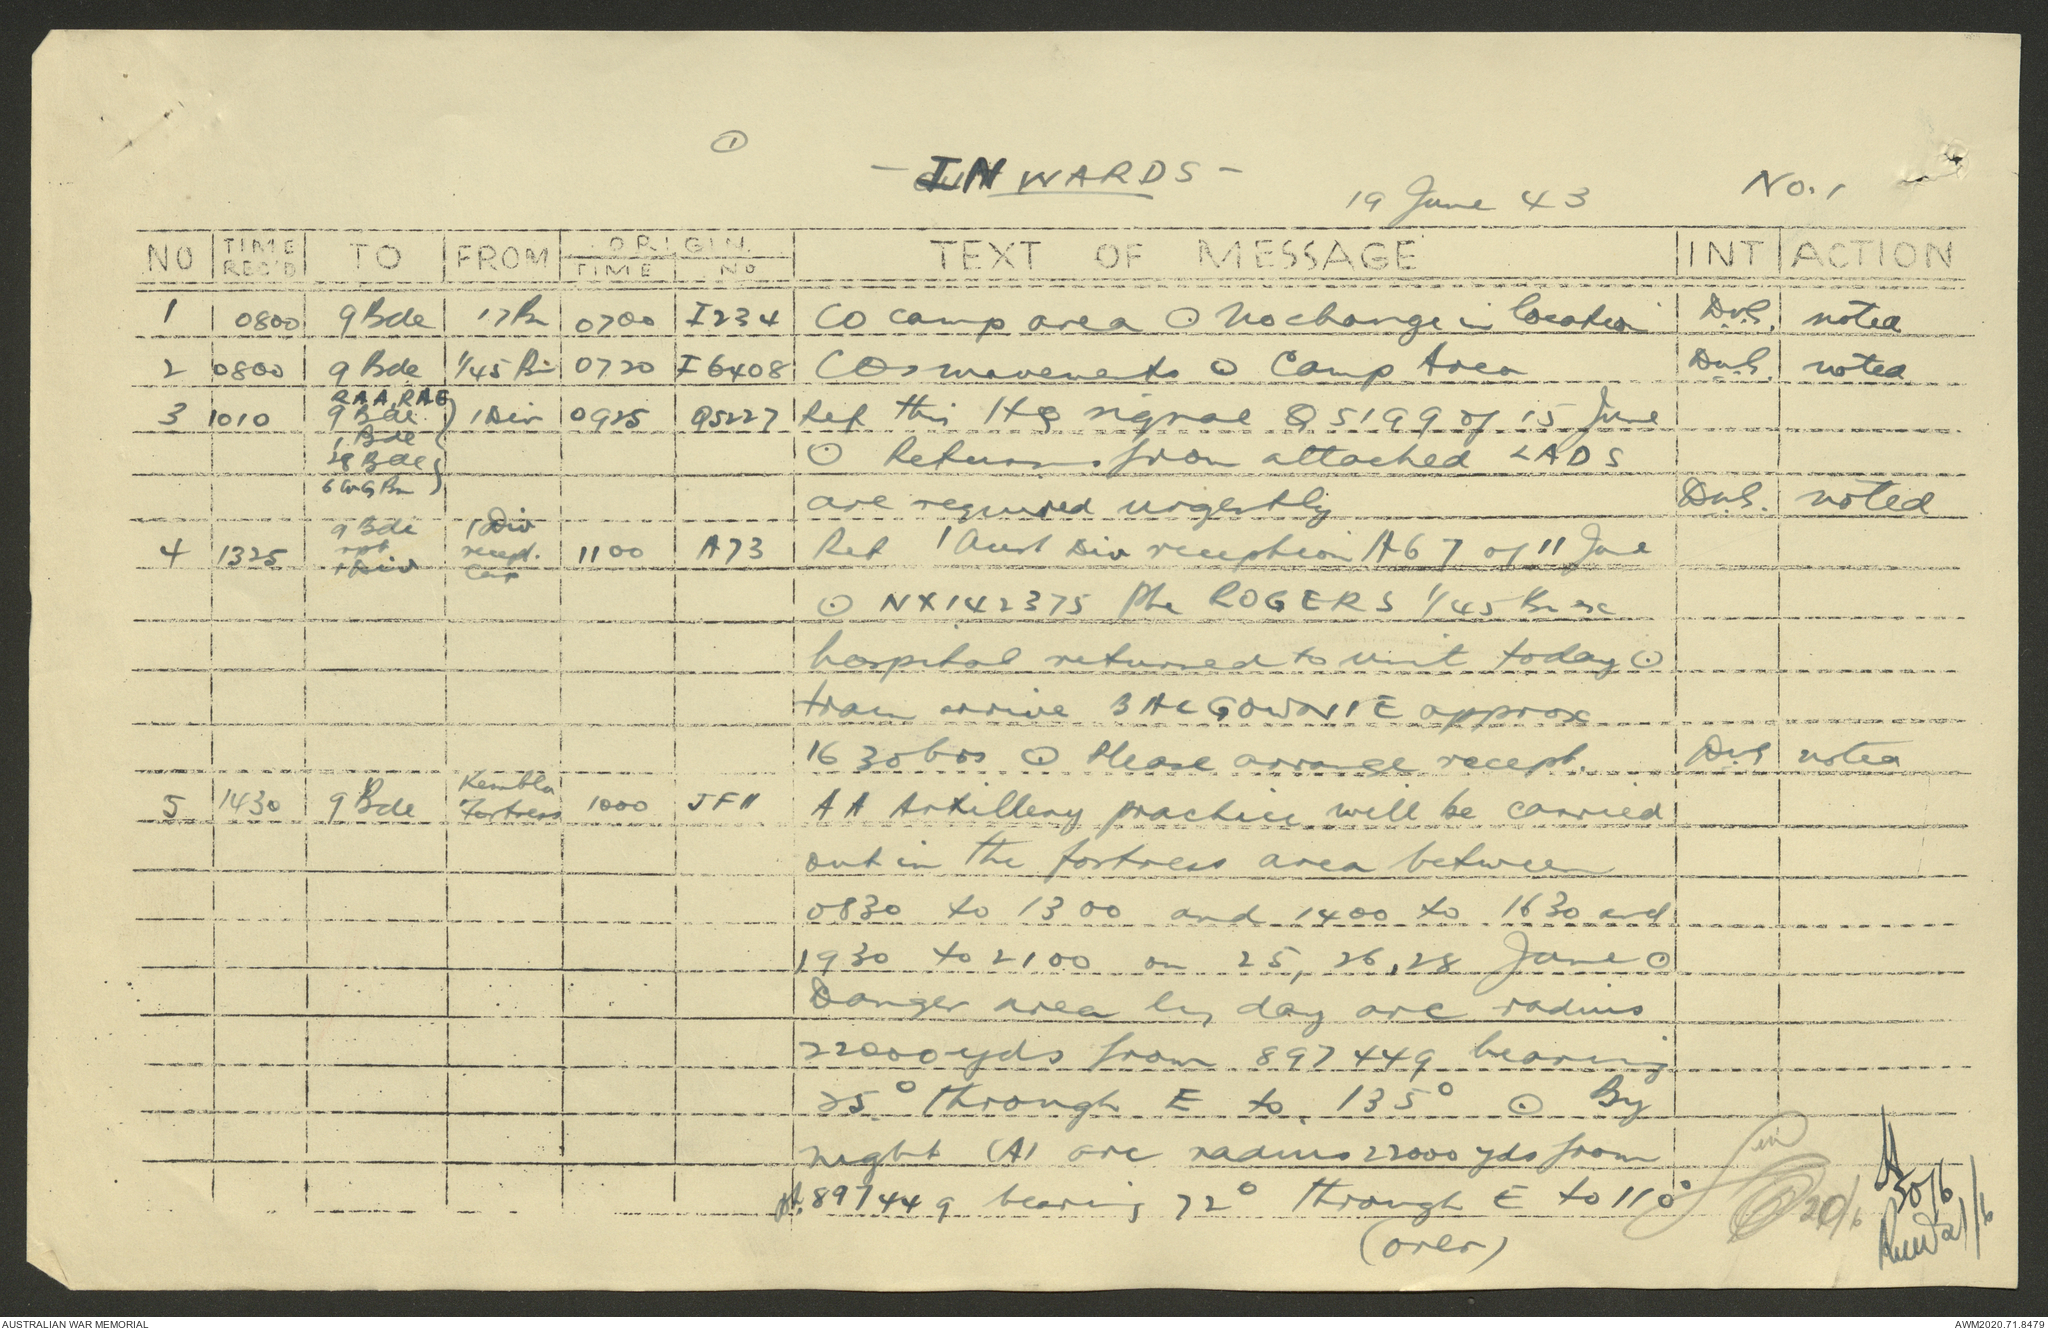 ①
- INWARDS -
19 June 43
No. 1
NO TIME REC'D TO FROM ORIGIN TIME NO TEXT OF MESSAGE INT ACTION
1 0800 9 Bde 17 Bn 0700 I234 CO camp area ⊙ No change in location D.v.S. noted
2 0800 9 Bde 1/45 Bn 0720 I6408 COs movements ⊙ Camp Area D.v.S. noted
RAA, RAE
3 1010 9 Bde 1 Div 0925 Q5227 Ref this HQ signal Q5199 of 15 June
1 Bde
28 Bde ⊙ Returns from attached LADS
6 Bn
are required urgently D.v.S. noted
9 Bde 1 Div
4 1325 rpt recept. 1100 A73 Ref 1 Aust Div reception A67 of 11 June
1 Div Camp
⊙ NX142375 Pte ROGERS 1/45 Bn ex
hospital returned to unit today ⊙
train arrive BALGOWNIE approx
1630 hrs ⊙ Please arrange recept. D.v.S. noted
Kembla
5 1430 9 Bde Fortress 1000 JF11 AA Artillery practice will be carried
out in the fortress area between
0830 to 1300 and 1400 to 1630 and
1930 to 2100 on 25, 26, 28 June ⊙
Danger area by day arc radius
22000 yds from 897449 bearing
25° through E to 135° ⊙ By
night (A) arc radius 22000 yds from
pt. 897449 bearing 72° through E to 110°
(over)
20/6
30/6
21/6
AUSTRALIAN WAR MEMORIAL
AWM2020.71.8479